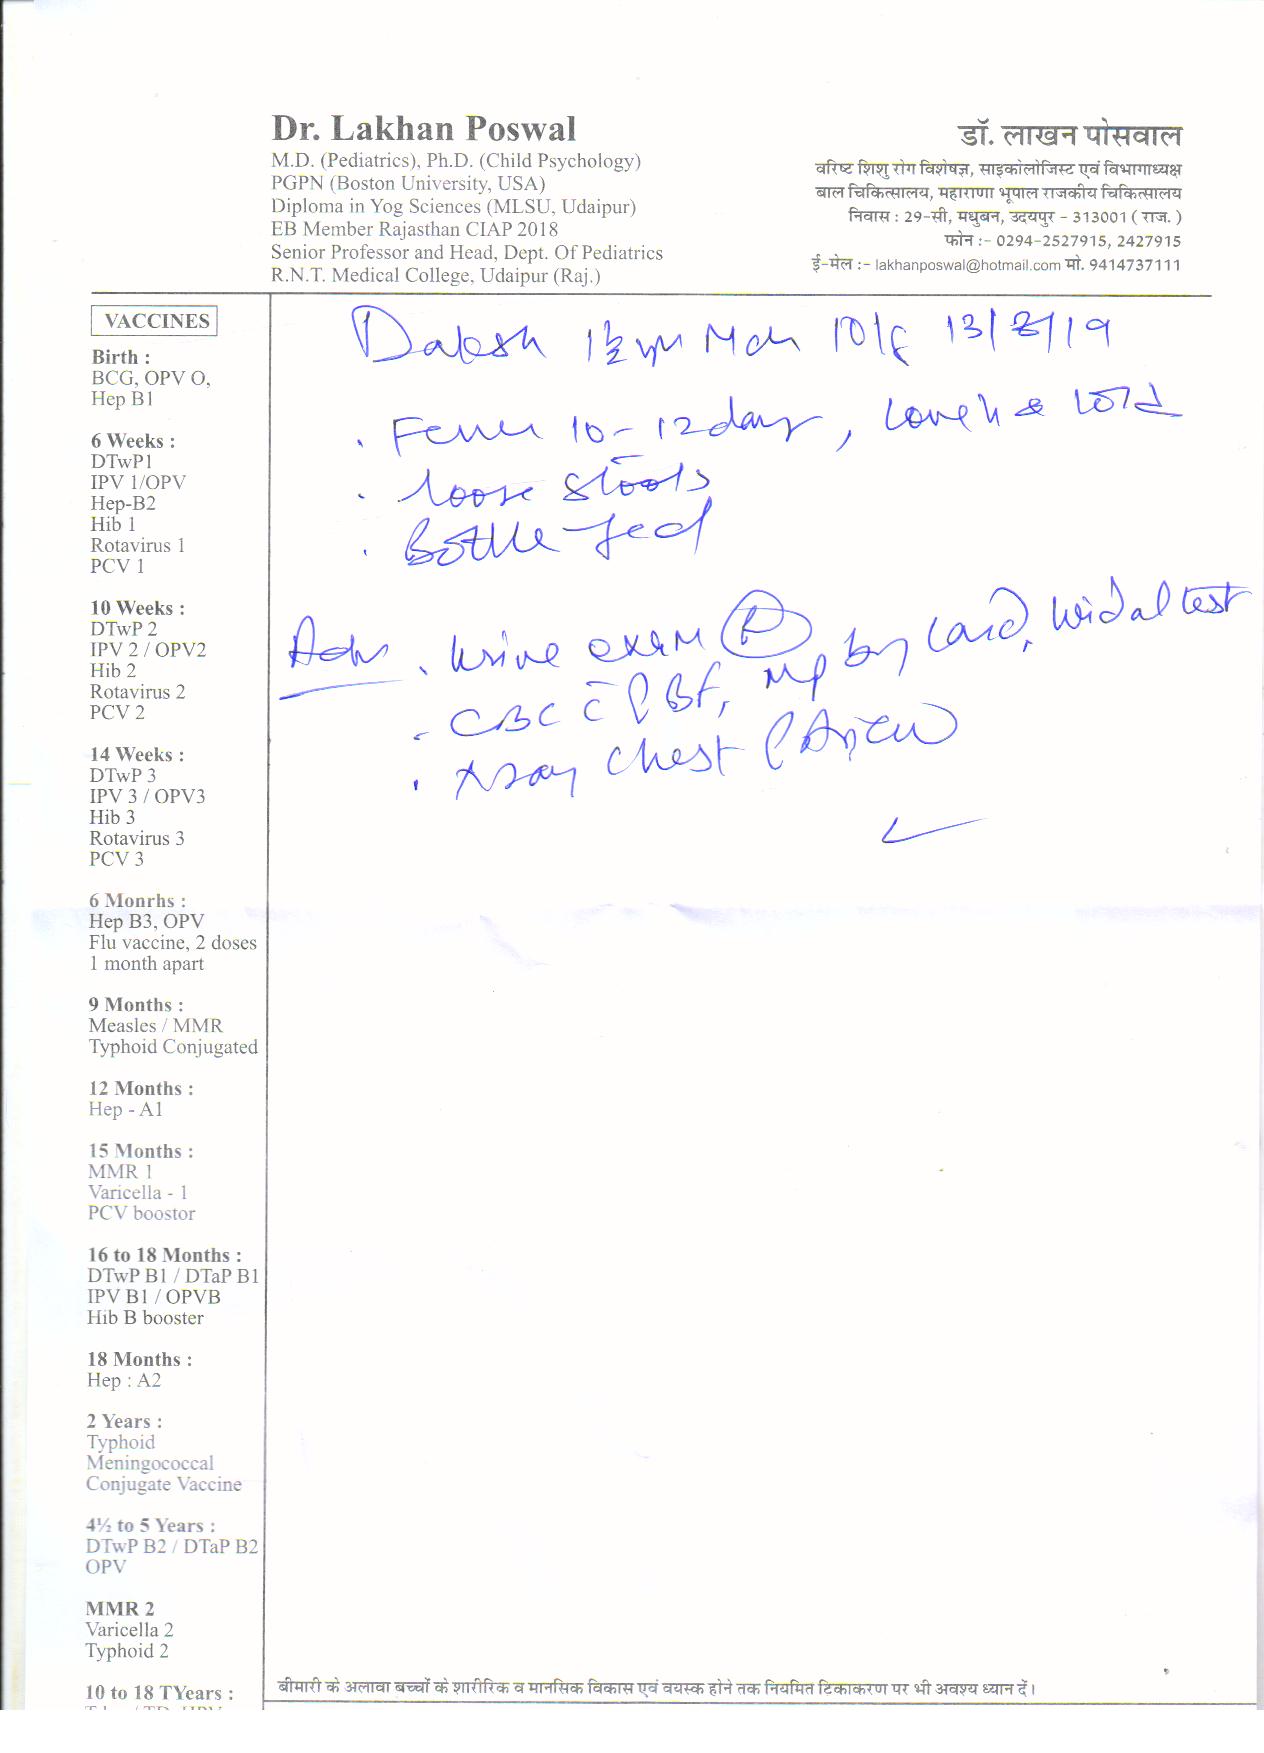 Dr. Lakhan Poswal
M.D. (Pediatrics), Ph.D. (Child Psychology)
PGPN (Boston University, USA)
Diploma in Yog Sciences (MLSU, Udaipur)
EB Member Rajasthan CIAP 2018
Senior Professor and Head, Dept. Of Pediatrics
R.N.T. Medical College, Udaipur (Raj.)
डॉ. लाखन पोसवाल
वरिष्ट शिशु रोग विशेषज्ञ, साइकोलोजिस्ट एवं विभागाध्यक्ष
बाल चिकित्सालय, महाराणा भूपाल राजकीय चिकित्सालय
निवास : 29-सी, मधुबन, उदयपुर - 313001 ( राज. )
फोन :- 0294-2527915, 2427915
ई-मेल :- lakhanposwal@hotmail.com मो. 9414737111
VACCINES
Birth :
BCG, OPV O,
Hep B1
6 Weeks :
DTwP1
IPV 1/OPV
Hep-B2
Hib 1
Rotavirus 1
PCV 1
10 Weeks :
DTwP 2
IPV 2 / OPV2
Hib 2
Rotavirus 2
PCV 2
14 Weeks :
DTwP 3
IPV 3 / OPV3
Hib 3
Rotavirus 3
PCV 3
6 Monrhs :
Hep B3, OPV
Flu vaccine, 2 doses
1 month apart
9 Months :
Measles / MMR
Typhoid Conjugated
12 Months :
Hep - A1
15 Months :
MMR 1
Varicella - 1
PCV boostor
16 to 18 Months :
DTwP B1 / DTaP B1
IPV B1 / OPVB
Hib B booster
18 Months :
Hep : A2
2 Years :
Typhoid
Meningococcal
Conjugate Vaccine
4½ to 5 Years :
DTwP B2 / DTaP B2
OPV
MMR 2
Varicella 2
Typhoid 2
10 to 18 TYears :
Daksh 1½ yr Mch 13/8/19
. Fever 10-12 days, Cough & Cold
. loose stools
. Bottle-fed
Adv . Urine exam (R)
MP by Card, Widal test
- CBC c̄ PBF,
. Xray Chest PA view
बीमारी के अलावा बच्चों के शारीरिक व मानसिक विकास एवं वयस्क होने तक नियमित टिकाकरण पर भी अवश्य ध्यान दें।